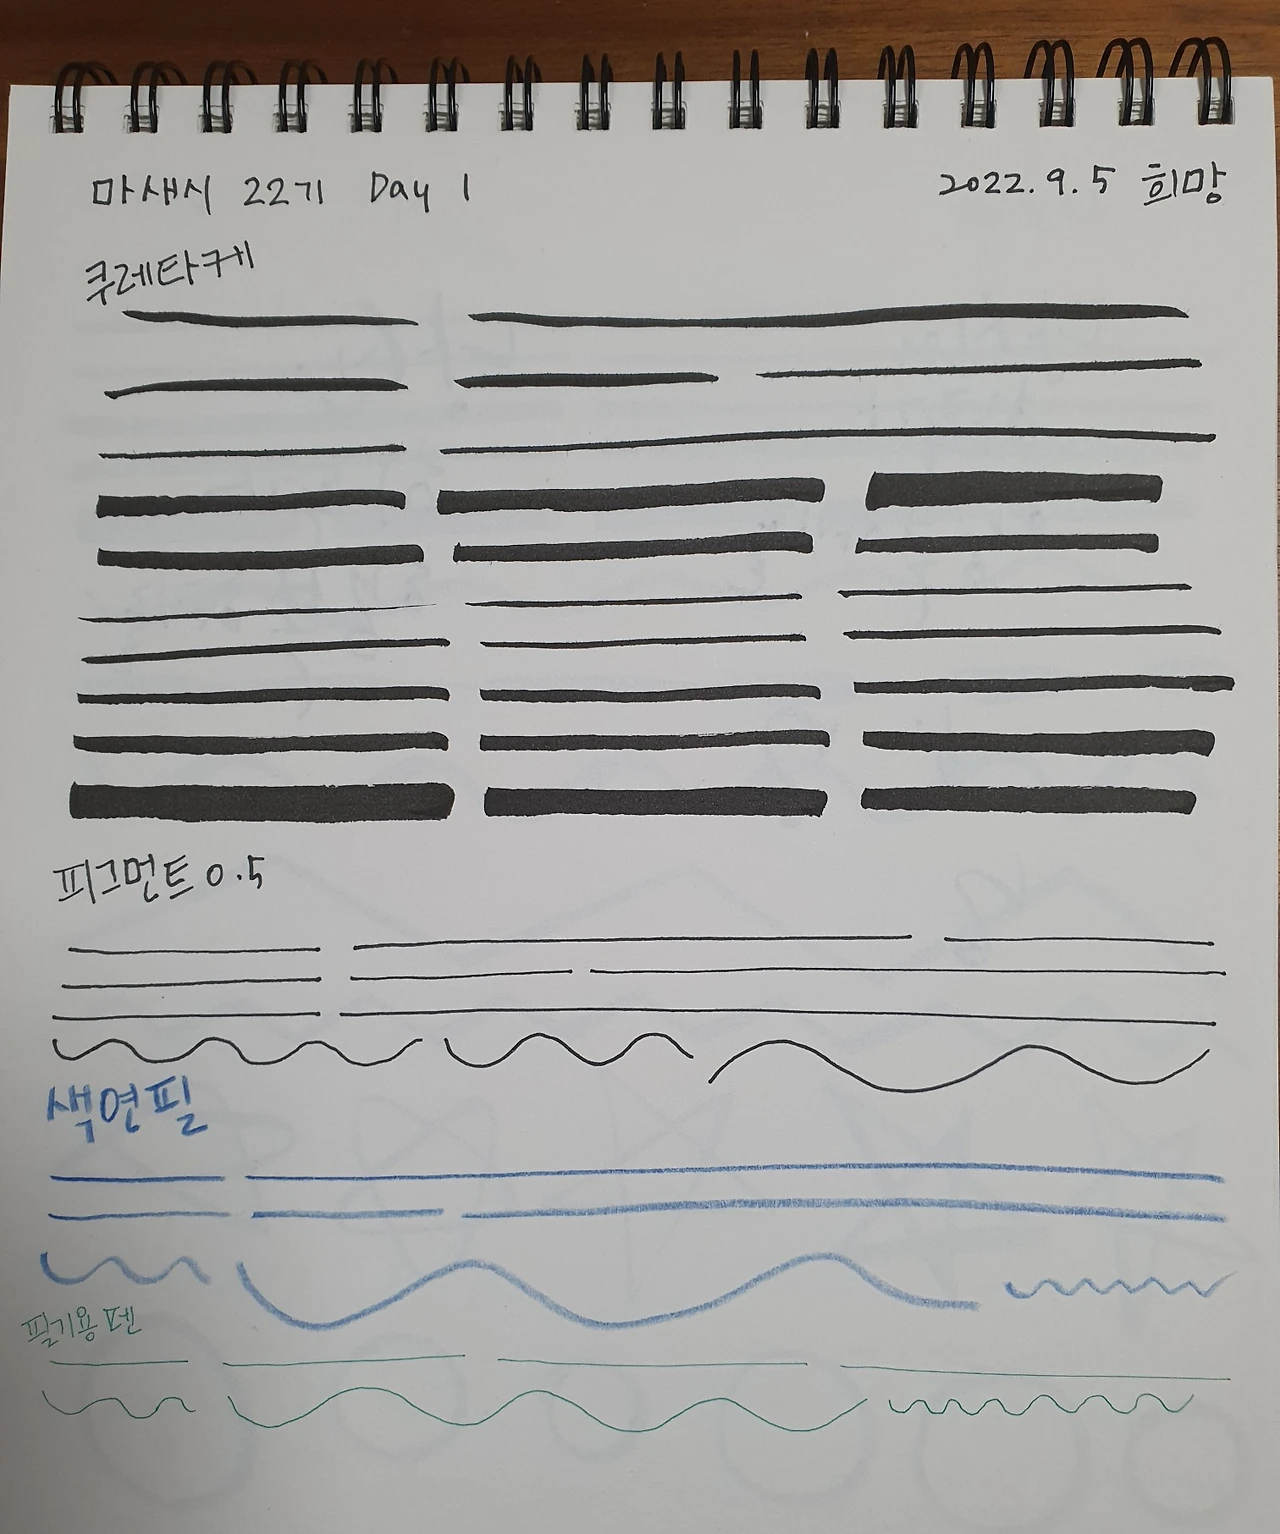 마새시 22기 Day 1
2022.9.5 희망
쿠레타케
피그먼트 0.5
색연필
필기용 펜